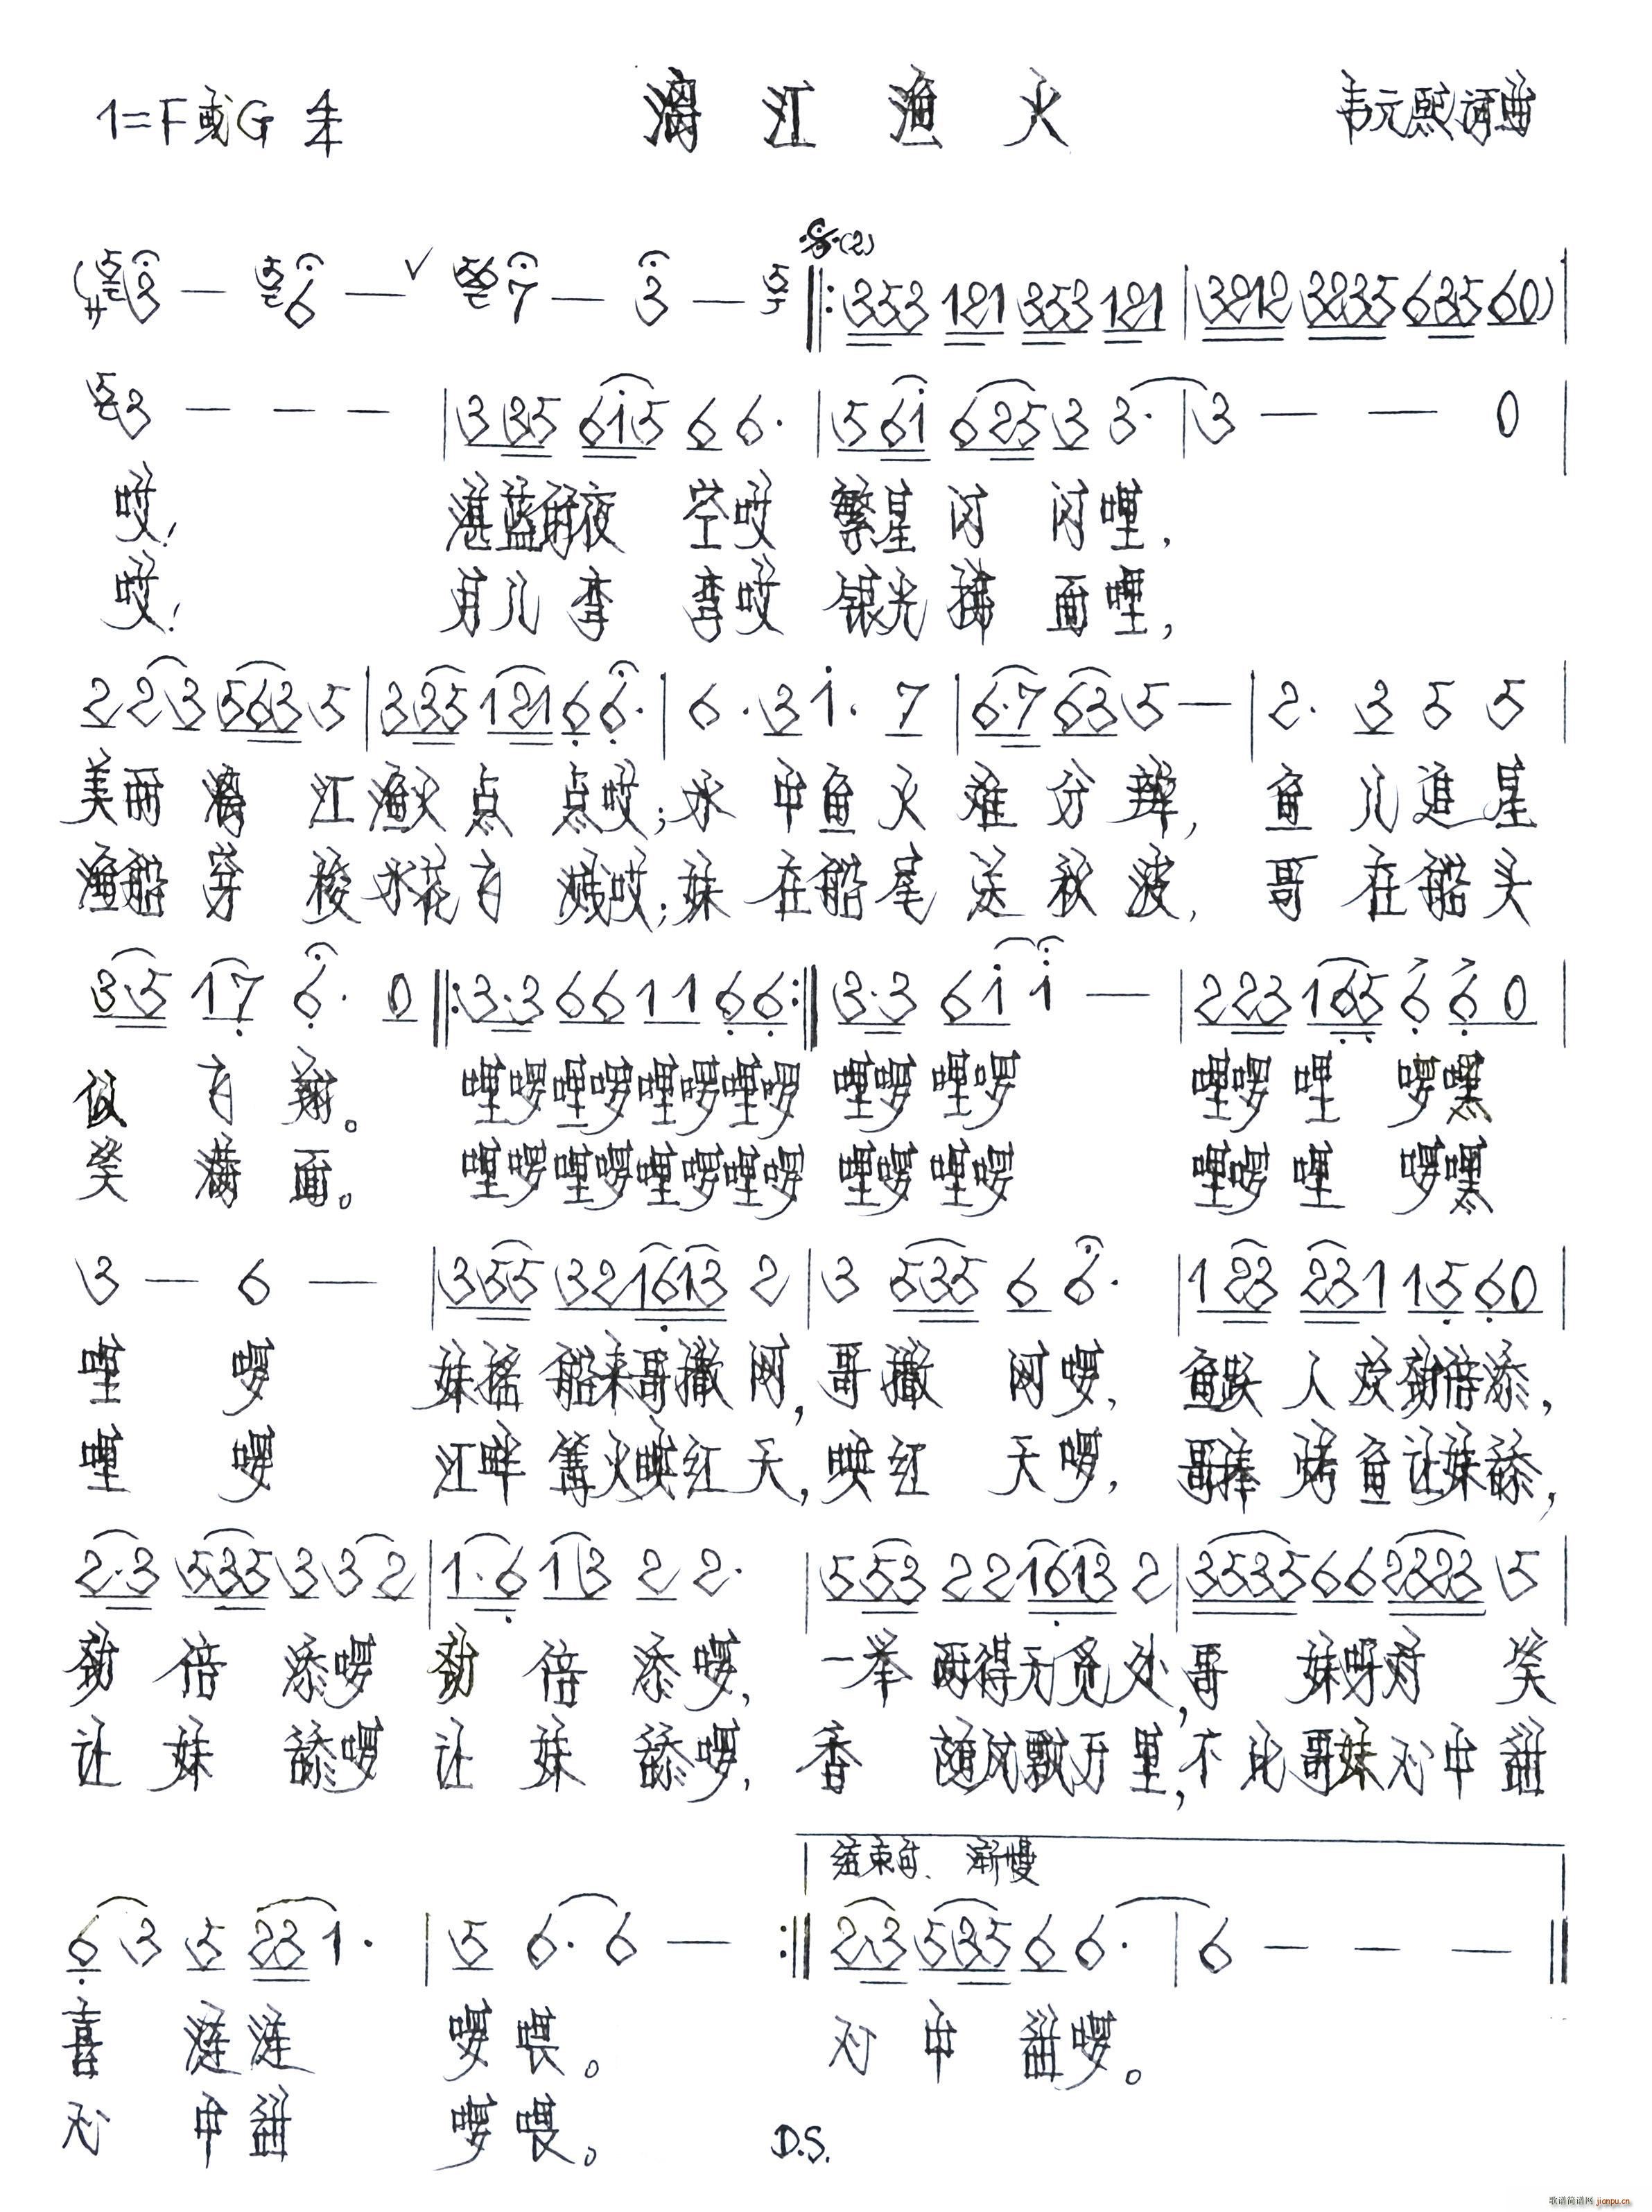 漓江渔火
1=F或G 4/4
韦元熙词曲
(2)
353 121 353 121 | 3212 3235 635 60)
3 — — — | 3 35 615 6 6· | 5 61 625 3 3· | 3 — — 0
哎! 湛蓝的夜空哎 繁星闪闪哩,
哎! 月儿弯弯哎 银光拂面哩,
2 2 3 563 5 | 335 121 6 6· | 6· 3 1· 7 | 6·7 63 5 — | 2· 3 5 5
美丽漓江渔火点点哎;水中鱼火难分辨,鱼儿追星
渔船穿梭水花飞溅哎;妹在船尾送秋波,哥在船头
3·5 17 6· 0 ‖: 3·3 66 11 66 :‖ 3·3 61 1 — | 223 165 6 60
似飞翔。 哩啰哩啰哩啰哩啰 哩啰哩啰 哩啰哩啰嘿
笑满面。 哩啰哩啰哩啰哩啰 哩啰哩啰 哩啰哩啰嘿
3 — 6 — | 355 321613 2 | 3 535 6 6· | 123 231 15 60
哩啰 妹摇船来哥撒网,哥撒网啰,鱼跃人欢劲倍添,
哩啰 江畔篝火映红天,映红天啰,哥捧烤鱼让妹舔,
2·3 535 3 3 2 | 1·6 13 2 2· | 553 22 1613 2 | 3535 66 2323 5
劲倍添啰劲倍添啰,一举两得无觅处,哥妹呀对笑
让妹舔啰让妹舔啰,香随风飘万里,不比哥妹心中甜
结束句、渐慢
6 3 5 23 1· | 5 6· 6 — :‖ 2·3 535 6 6· | 6 — — —
喜涟涟啰喂。 心中甜啰。
心中甜啰喂。 D.S.
歌谱简谱网 jianpu.cn